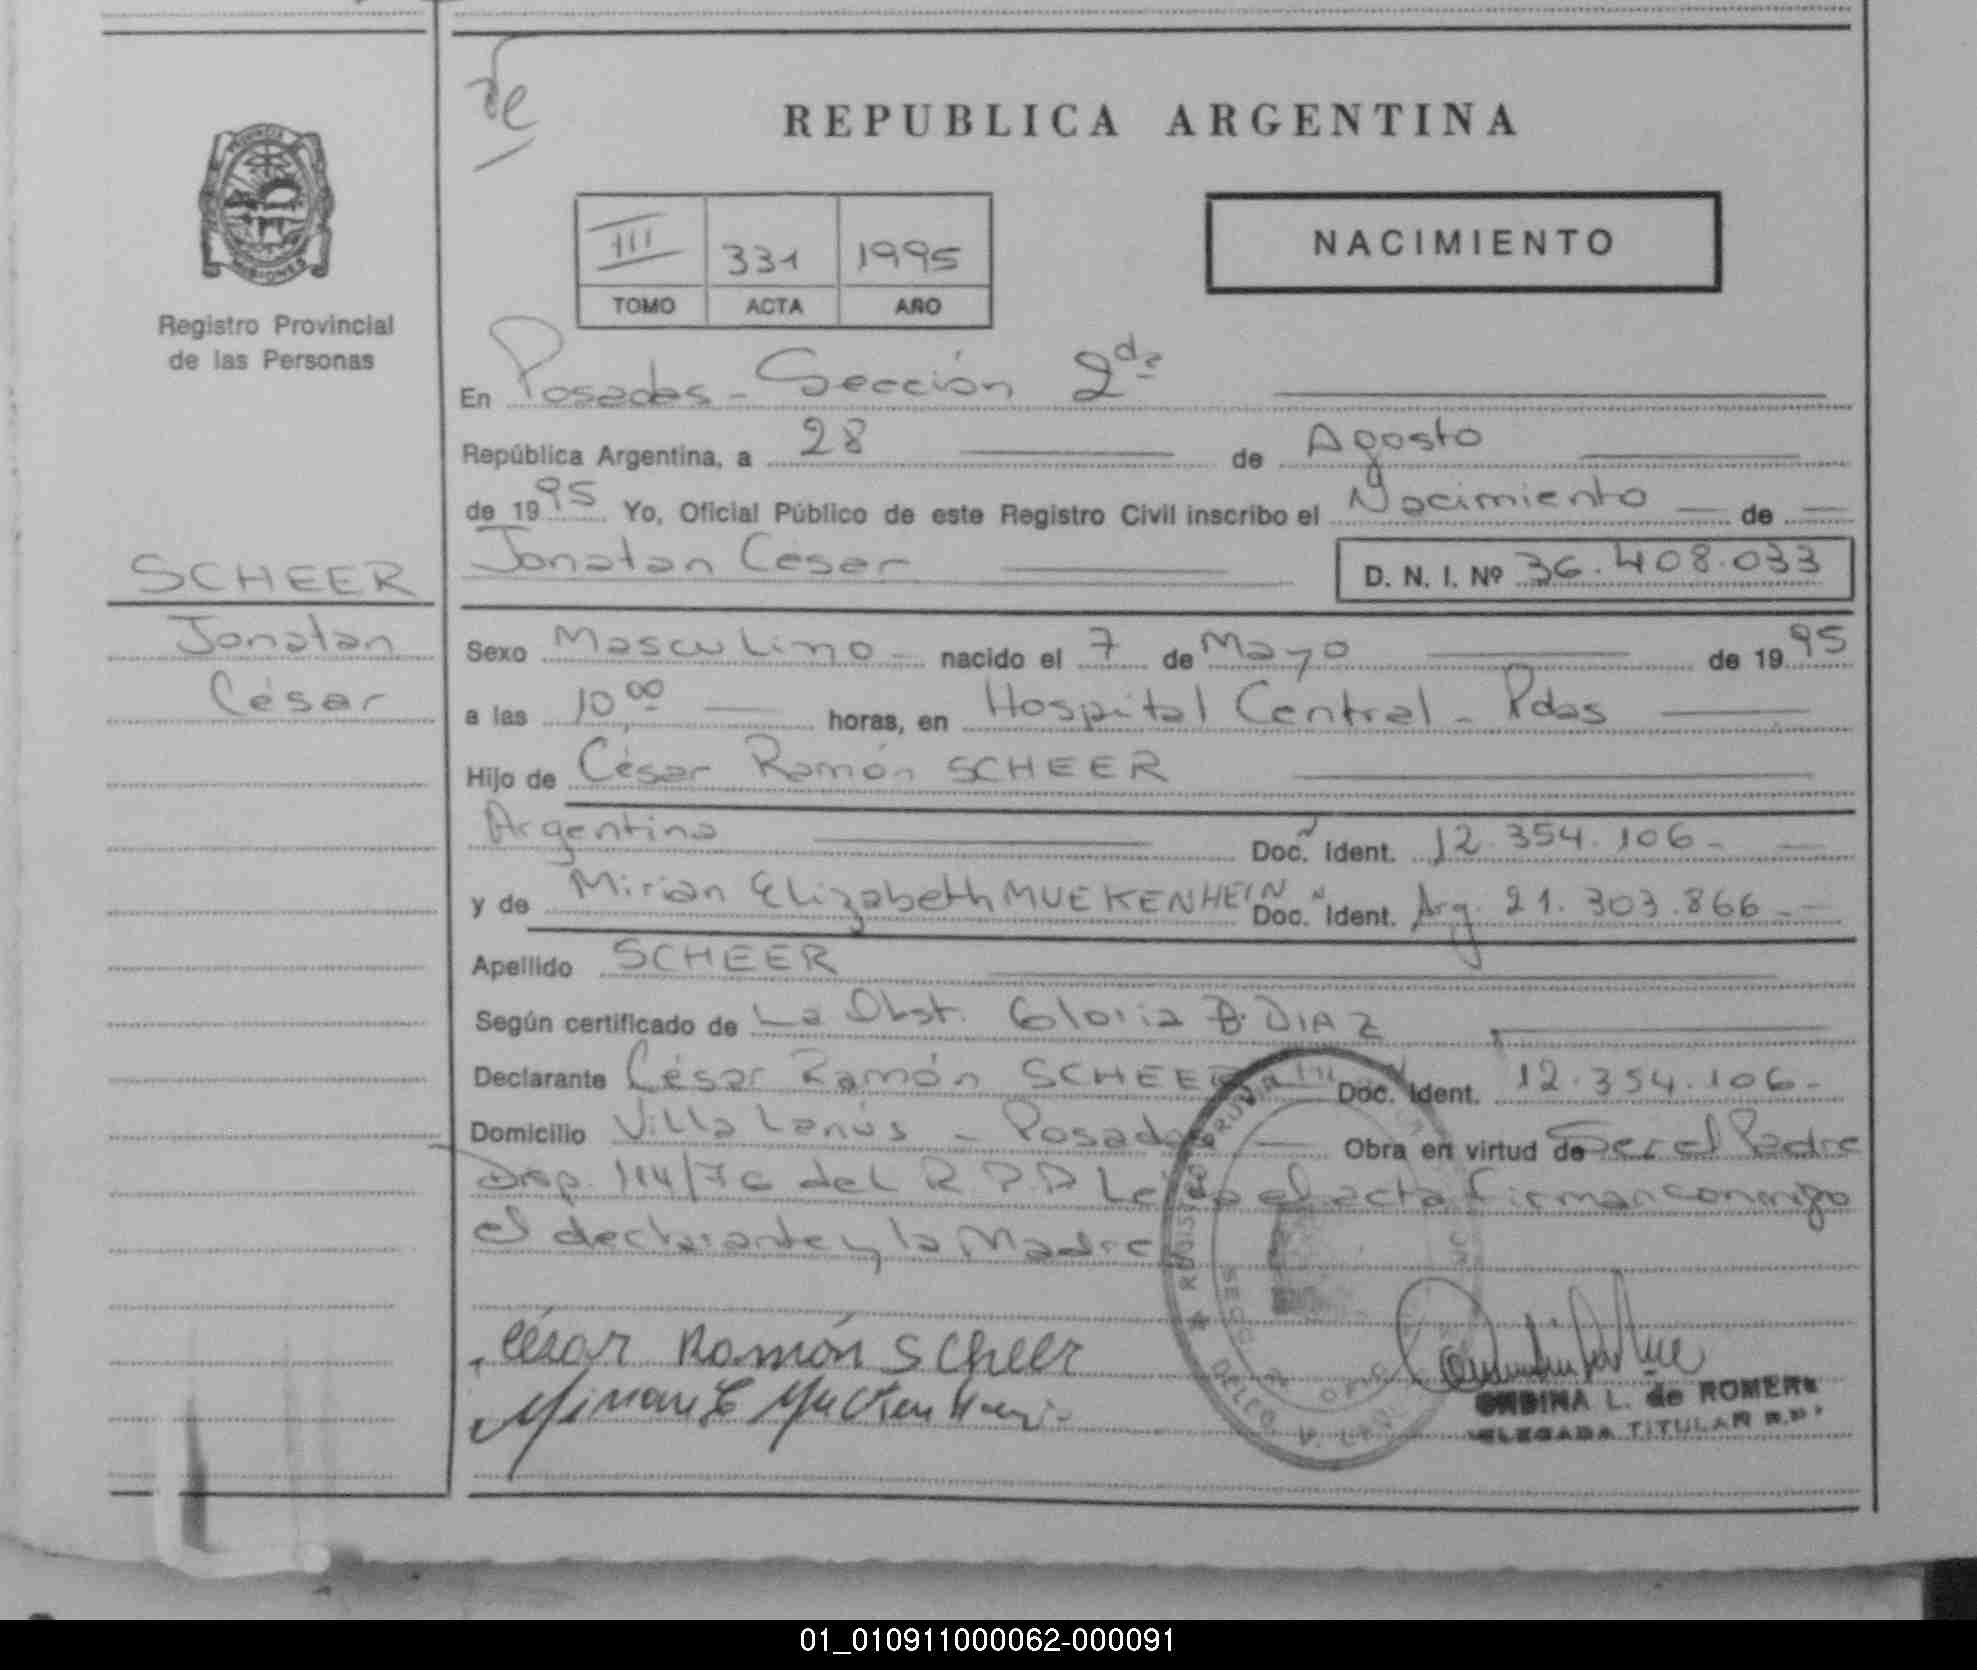 REPUBLICA ARGENTINA
PROVINCIA
MISIONES
Registro Provincial
de las Personas
III 331 1995
TOMO ACTA AÑO
NACIMIENTO
En Posadas - Sección 2da
República Argentina, a 28 de Agosto
de 1995 Yo, Oficial Público de este Registro Civil inscribo el Nacimiento de
Jonatan César D. N. I. Nº 36.408.033
SCHEER
Jonatan
César
Sexo Masculino nacido el 7 de Mayo de 1995
a las 10 00 horas, en Hospital Central - Pdas
Hijo de César Ramón SCHEER
Argentina Doc. Ident. 12.354.106-
y de Mirian Elizabeth MUEKENHEIN Doc. Ident. Arg. 21.303.866-
Apellido SCHEER
Según certificado de La Obst. Gloria B. DIAZ
Declarante César Ramón SCHEER Doc. Ident. 12.354.106-
Domicilio Villa Lanús - Posadas Obra en virtud de Ser el Padre
Disp. 114/76 del R.P.P Leída el acta firman conmigo
el declarante y la Madre
César Ramón Scheer
L. de ROMERO
TITULAR
01_010911000062-000091